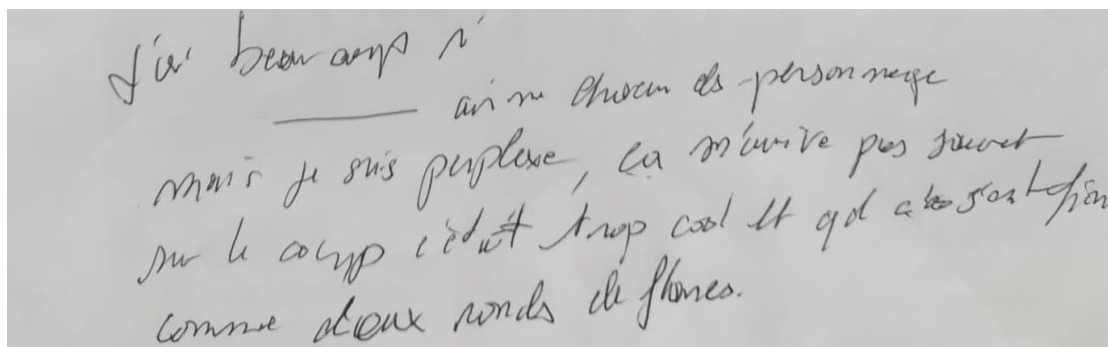 J'ai beaucoup
aimé chacun des personnage
mais je suis perplexe, ça m'arrive pas souvent
sur le coup c'était trop cool et qd
comme deux ronds de flancs.